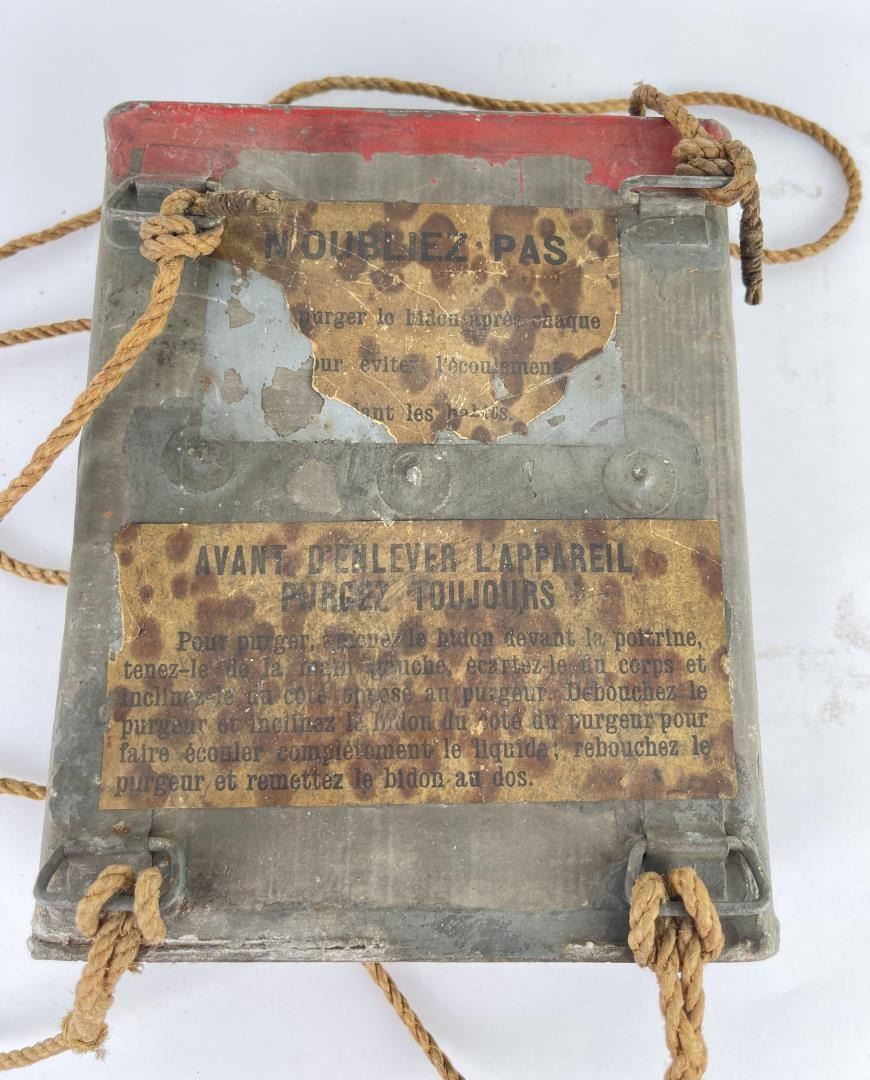 N'OUBLIEZ PAS
purger le bidon après chaque
our éviter l'écoulement
les habits.
AVANT D'ENLEVER L'APPAREIL
PURGEZ TOUJOURS
Pour purger, le bidon devant la poitrine,
tenez-le de la main gauche, écartez-le du corps et
inclinez-le du côté opposé au purgeur. Débouchez le
purgeur et inclinez le bidon du côté du purgeur pour
faire écouler complètement le liquide; rebouchez le
purgeur et remettez le bidon au dos.